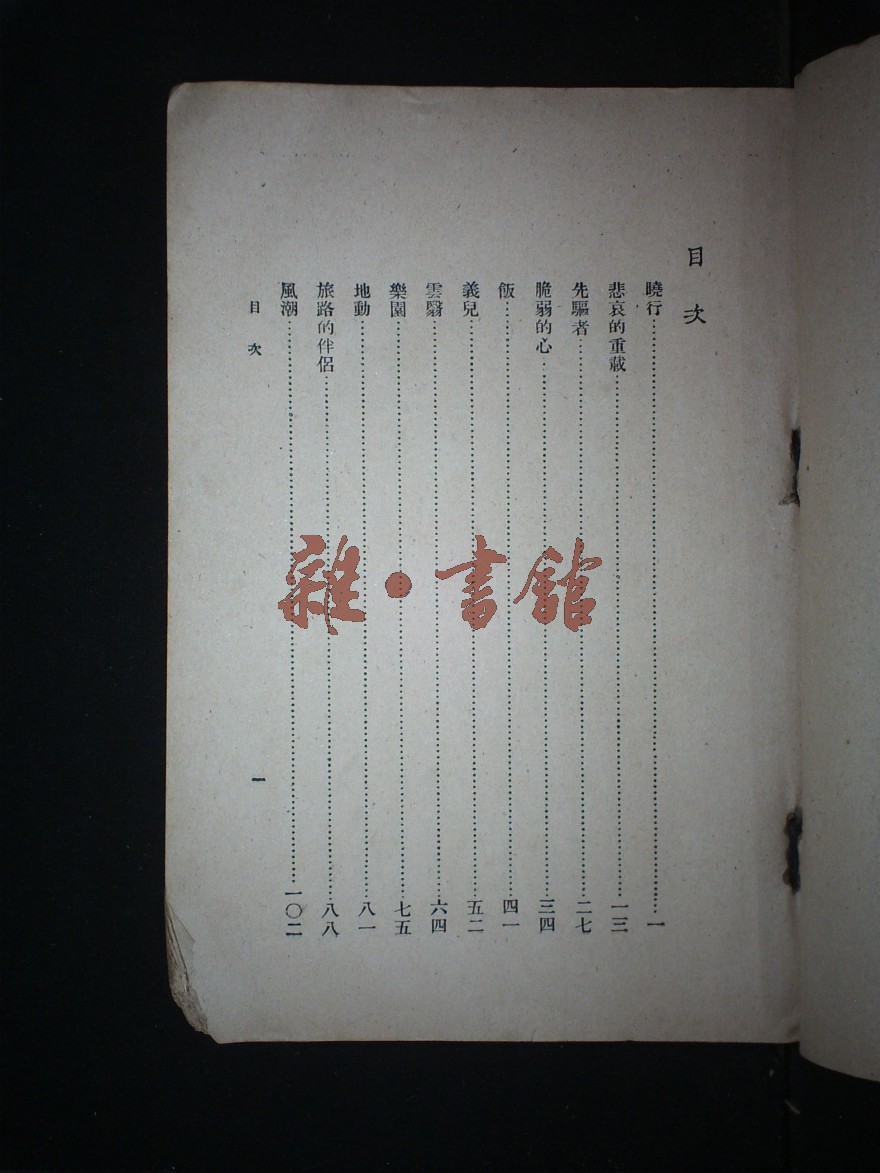 目次
曉行……一
悲哀的重載……一三
先驅者……二七
脆弱的心……三四
飯……四一
義兒……五二
雲翳……六四
樂園……七五
地動……八一
旅路的伴侶……八八
風潮……一〇二
目次
一
雜·書館